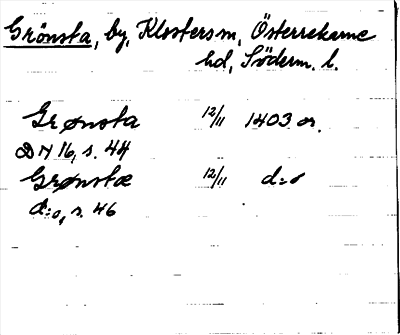 Grönsta, by, Klosters sn, Österrekarne
hd, Söderm. l.
Grønsta 12/11 1403 or.
DN 16, s. 44
Grønstæ 12/11 d:o
d:o, s. 46